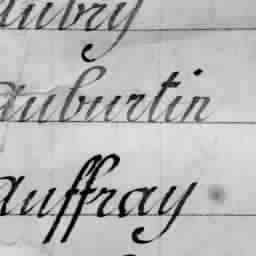 aubry
auburtin
auffray